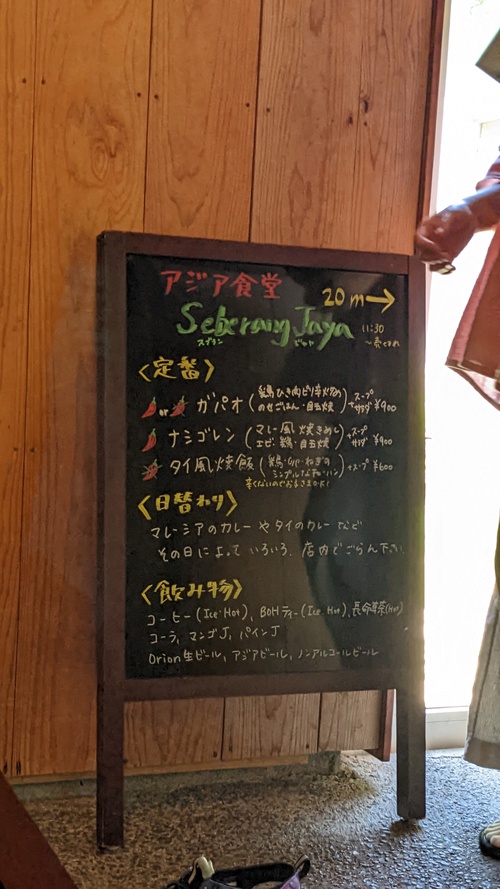 アジア食堂
20m→
Seberang Jaya
11:30
〜売切れ
スブラン ジャヤ
〈定番〉
or ガパオ (鶏ひき肉ピリ辛炒め のせごはん・目玉焼) +スープ サラダ ¥900
ナシゴレン (マレー風焼きめし エビ・鶏・目玉焼) +スープ サラダ ¥900
タイ風焼飯 (鶏・卵・ねぎの シンプルなチャーハン) +スープ ¥600
辛くないのでお子さまにも!
〈日替わり〉
マレーシアのカレーやタイのカレーなど
その日によっていろいろ。店内でごらん下さい。
〈飲み物〉
コーヒー(Ice・Hot), BOHティー(Ice・Hot), 長命草茶(Hot)
コーラ, マンゴJ, パインJ
Orion生ビール, アジアビール, ノンアルコールビール